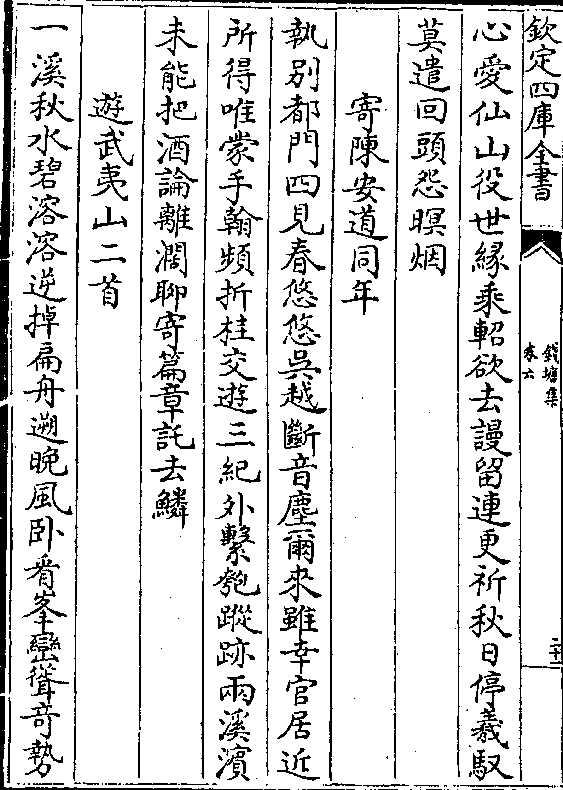 欽定四庫全書
錢塘集
卷六
二十二
心愛仙山役世緣乘軺欲去謾留連更祈秋日停羲馭
莫遣回頭怨暝烟
寄陳安道同年
執別都門四見春悠悠吳越斷音塵爾來雖幸官居近
所得唯蒙手翰頻折桂交遊三紀外繫匏蹤跡兩溪濱
未能把酒論離濶聊寄篇章託去鱗
遊武夷山二首
一溪秋水碧溶溶逆掉扁舟遡晚風卧看峯巒聳竒勢